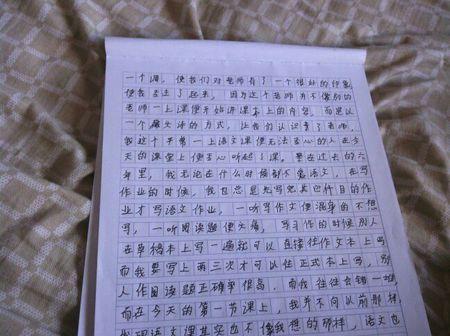 一个词，使我们对老师有了一个很好的印象
使我喜过了起来，因为这个老师并不像别的
老师一上课便开始讲课本上的内容，而是以
一个方法的方式，让我们认识了老师，
我这个平常一上语文课便无法专心的人在今
天的课堂上便专心听起了课。要在过去的六
年里，我无论在什么时候都不爱语文，在写
作业的时候，我也总是先写完其它科目的作
业才写语文作业，一听写作文便浑身的不想
写，一听阅读题便头痛，写作的时候别人
在草稿本上写一遍就可以直接往作文本上写
而我要写上两三次才可以往正式本上写，别
人作阅读题正确率很高，而我往往会错一堆，
而在今天的第一节课上，我并不向以前那样
发现语文课其实也不像我想的那样，语文也